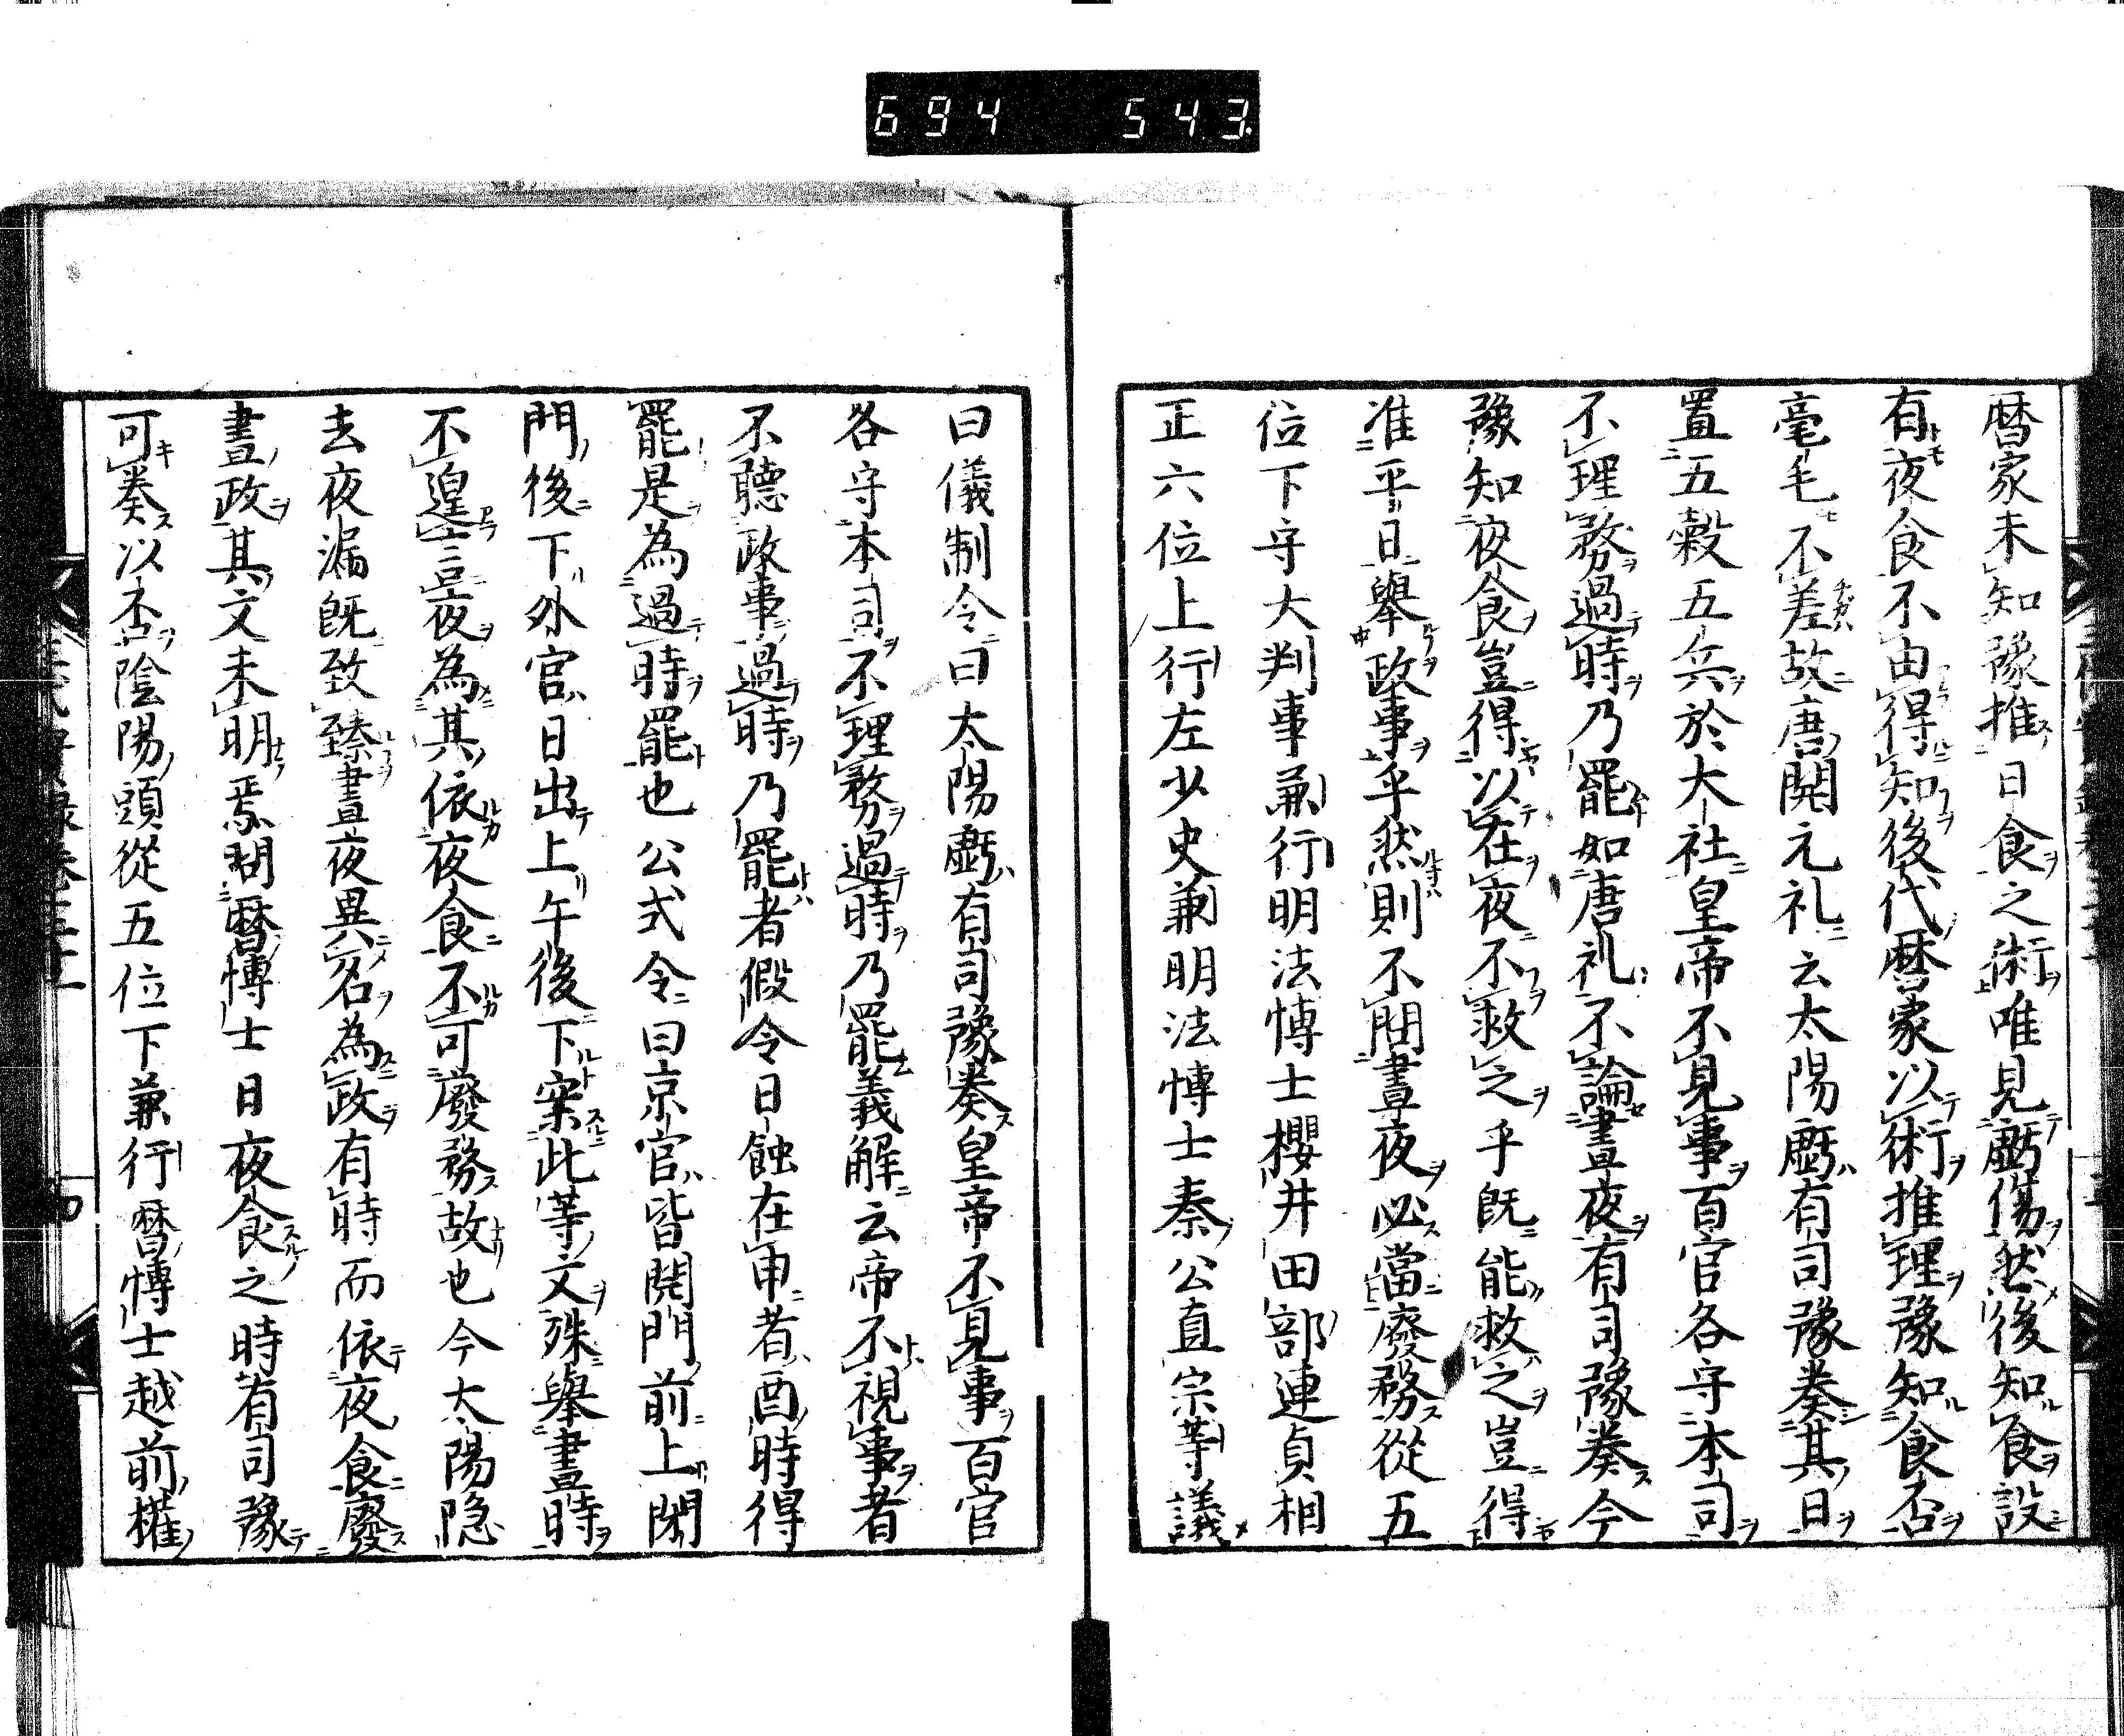 694 543
暦家未知豫推日食之術唯見虧傷然後知食設
有夜食不由得知後代暦家以術推理豫知食否
毫毛不差故唐開元礼云太陽虧有司豫奏其日
置五穀五兵於大社皇帝不見事百官各守本司
不理務過時乃罷如唐礼不論晝夜有司豫奏今
豫知夜食豈得以在夜不救之乎既能救之豈得
准平日舉政事乎然則不問晝夜必當廢務從五
位下守大判事兼行明法博士櫻井田部連貞相
正六位上行左少史兼明法博士秦公直宗等議
曰儀制令曰太陽虧有司豫奏皇帝不見事百官
各守本司不理務過時乃罷義解云帝不視事者
不聽政事過時乃罷者假令日蝕在申者酉時得
罷是為過時罷也公式令曰京官皆開門前上閉
門後下外官日出上午後下案此等文殊舉晝時
不遑言夜為其依夜食不可廢務故也今太陽隐
去夜漏既致臻晝夜異名為政有時而依夜食廢
晝政其文未明焉問暦博士日夜食之時有司豫
可奏以否陰陽頭從五位下兼行暦博士越前權